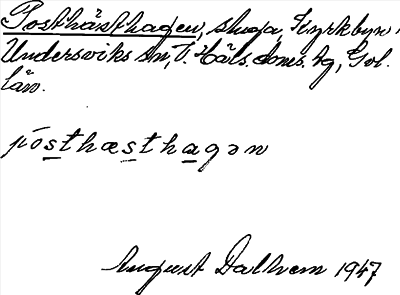 Posthästhagen, stuga, Kyrkbyn,
Undersviks sn, V. Häls. doms. hg, Gvl.
län.
pósthæsthagən
August Dalhem 1947